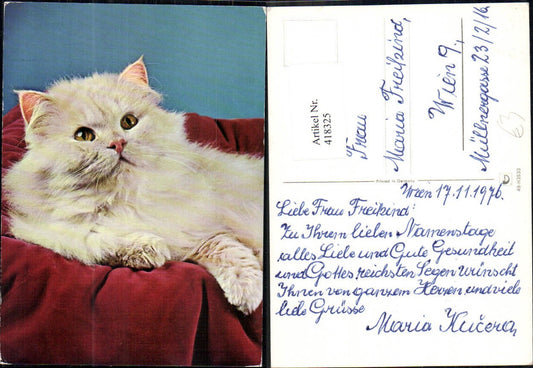 Artikel Nr.
418325
Frau
Maria Freikind,
Wien 9.,
Müllnergasse 23/2/16
Printed in Germany
Wien 17.11.1976.
Liebe Frau Freikind:
Zu Ihrem lieben Namenstage
alles Liebe und Gute Gesundheit
und Gottes reichsten Segen wünscht
Ihnen von ganzem Herzen und viele
liebe Grüsse
Maria Kučera,